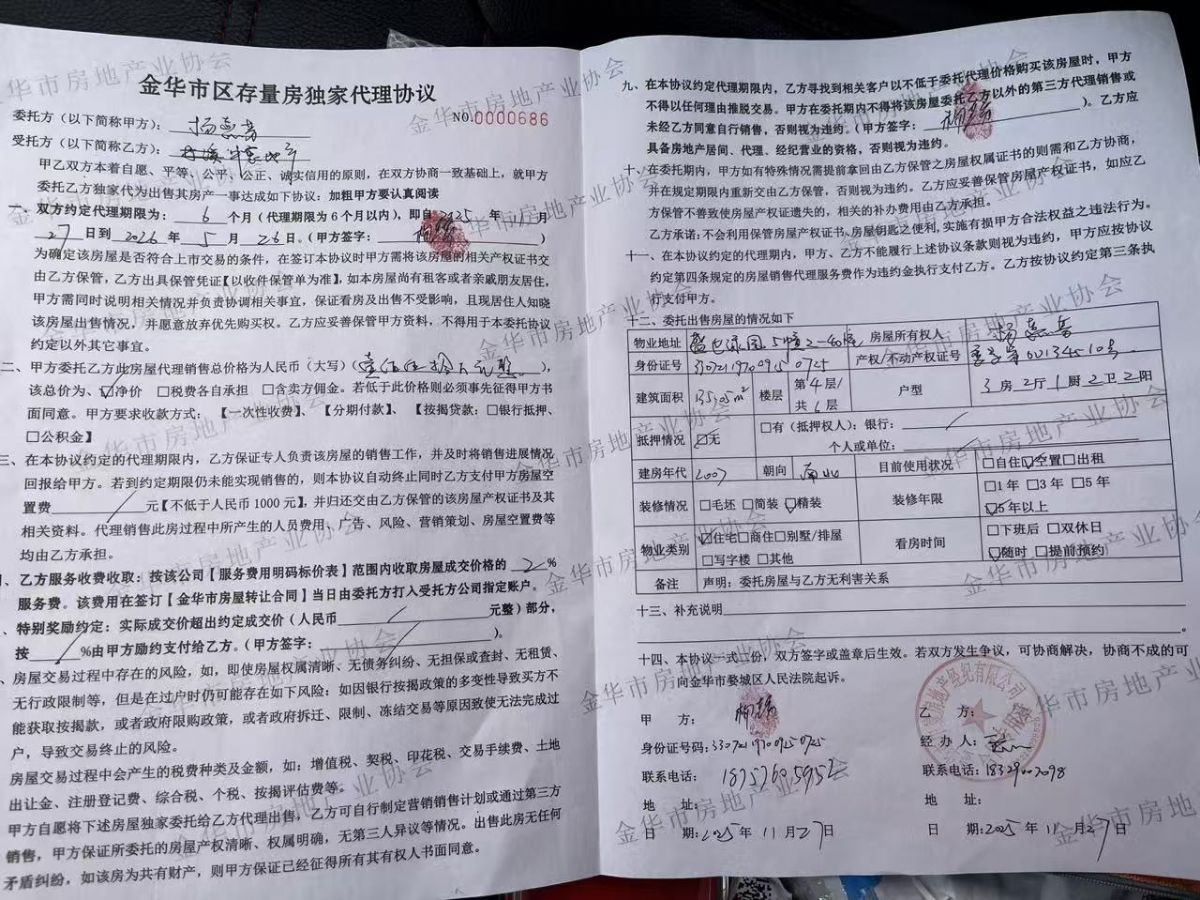 金华市区存量房独家代理协议
NO.0000686
委托方（以下简称甲方）：
受托方（以下简称乙方）：
甲乙双方本着自愿、平等、公平、公正、诚实信用的原则，在双方协商一致基础上，就甲方
委托乙方独家代为出售其房产一事达成如下协议：加粗甲方要认真阅读
一、双方约定代理期限为：6个月（代理期限为6个月以内），即自2025年 月
27日到2026年5月26日。（甲方签字： ）
为确定该房屋是否符合上市交易的条件，在签订本协议时甲方需将该房屋的相关产权证书交
由乙方保管，乙方出具保管凭证【以收件保管单为准】，如本房屋尚有租客或者亲戚朋友居住，
甲方需同时说明相关情况并负责协调相关事宜，保证看房及出售不受影响，且现居住人知晓
该房屋出售情况，并愿意放弃优先购买权。乙方应妥善保管甲方资料，不得用于本委托协议
约定以外其它事宜。
二、甲方委托乙方此房屋代理销售总价格为人民币（大写）（ ），
该总价为、☑净价 □税费各自承担 □含卖方佣金。若低于此价格则必须事先征得甲方书
面同意。甲方要求收款方式：【一次性收费】、【分期付款】、【按揭贷款：□银行抵押、
□公积金】
三、在本协议约定的代理期限内，乙方保证专人负责该房屋的销售工作，并及时将销售进展情况
回报给甲方。若到约定期限仍未能实现销售的，则本协议自动终止同时乙方支付甲方房屋空
置费 元【不低于人民币1000元】，并归还交由乙方保管的该房屋产权证书及其
相关资料。代理销售此房过程中所产生的人员费用、广告、风险、营销策划、房屋空置费等
均由乙方承担。
、乙方服务收费收取：按该公司【服务费用明码标价表】范围内收取房屋成交价格的2%
服务费。该费用在签订【金华市房屋转让合同】当日由委托方打入受托方公司指定账户。
、特别奖励约定：实际成交价超出约定成交价（人民币 元整）部分，
按 %由甲方励约支付给乙方。（甲方签字： ）。
、房屋交易过程中存在的风险，如，即使房屋权属清晰、无债务纠纷、无担保或查封、无租赁、
无行政限制等，但是在过户时仍可能存在如下风险：如因银行按揭政策的多变性导致买方不
能获取按揭款，或者政府限购政策，或者政府拆迁、限制、冻结交易等原因致使无法完成过
户，导致交易终止的风险。
房屋交易过程中会产生的税费种类及金额，如：增值税、契税、印花税、交易手续费、土地
出让金、注册登记费、综合税、个税、按揭评估费等。
甲方自愿将下述房屋独家委托给乙方代理出售，乙方可自行制定营销销售计划或通过第三方
销售，甲方保证所委托的房屋产权清晰、权属明确，无第三人异议等情况。出售此房无任何
矛盾纠纷，如该房为共有财产，则甲方保证已经征得所有其有权人书面同意。
九、在本协议约定代理期限内，乙方寻找到相关客户以不低于委托代理价格购买该房屋时，甲方
不得以任何理由推脱交易。甲方在委托期内不得将该房屋委托乙方以外的第三方代理销售或
未经乙方同意自行销售，否则视为违约。（甲方签字： ）。乙方应
具备房地产居间、代理、经纪营业的资格，否则视为违约。
十、在委托期内，甲方如有特殊情况需提前拿回由乙方保管之房屋权属证书的则需和乙方协商，
并在规定期限内重新交由乙方保管，否则视为违约。乙方应妥善保管房屋产权证证，如应乙
方保管不善致使房屋产权证遗失的，相关的补办费用由乙方承担。
乙方承诺：不会利用保管房屋产权证书、房屋钥匙之便利，实施有损甲方合法权益之违法行为。
十一、在本协议约定的代理期内，甲方、乙方不能履行上述协议条款则视为违约，甲方应按协议
约定第四条规定的房屋销售代理服务费作为违约金执行支付乙方。乙方按协议约定第三条执
行支付甲方。
十二、委托出售房屋的情况如下
物业地址 房屋所有权人
身份证号 330721197009250725 产权/不动产权证号
建筑面积 135.05m² 楼层 第4层/共6层 户型 3房2厅1厨2卫2阳
抵押情况 ☑无 □有（抵押权人）：银行：
个人或单位：
建房年代 2007 朝向 南北 目前使用状况 □自住☑空置□出租
装修情况 □毛坯 □简装 ☑精装 装修年限 □1年 □3年 □5年
☑5年以上
物业类别 ☑住宅□商住□别墅/排屋 □写字楼 □其他 看房时间 □下班后 □双休日
☑随时 □提前预约
备注 声明：委托房屋与乙方无利害关系
十三、补充说明
十四、本协议一式二份，双方签字或盖章后生效。若双方发生争议，可协商解决，协商不成的可
向金华市婺城区人民法院起诉。
甲 方： 乙 方：
身份证号码：330721197009250725 经 办 人：
联系电话：18757695952 联系电话：18329007098
地 址： 地 址：
日 期：2025年11月27日 日 期：2025年11月27日
金华市房地产业协会